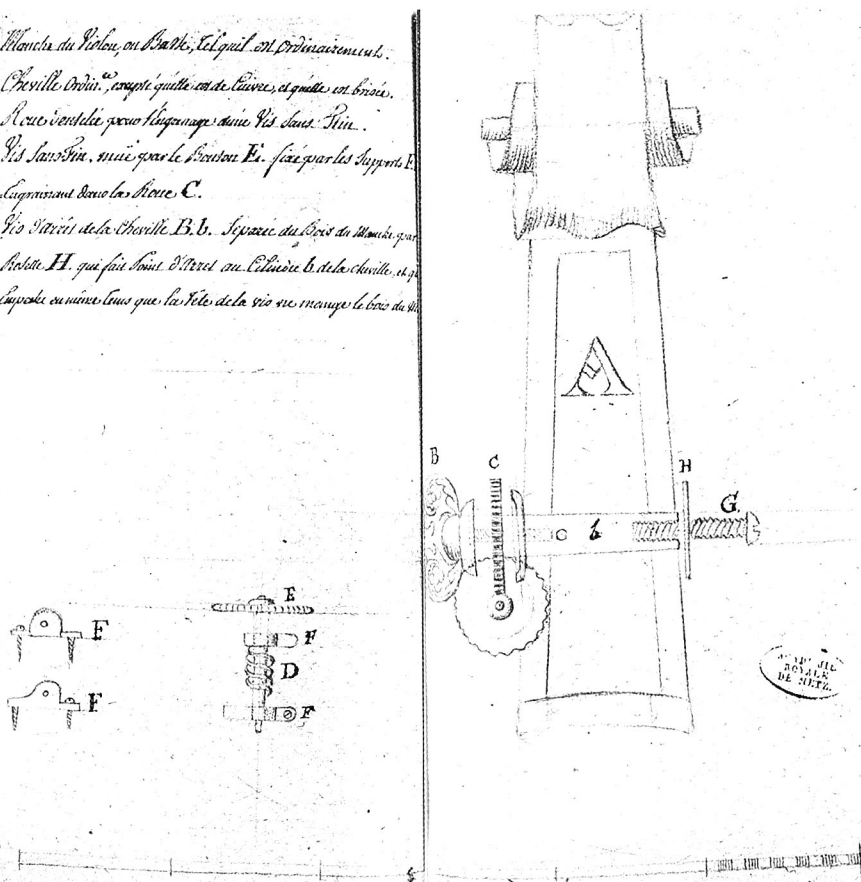 Manche du Violon, ou Basse, tel qu'il est ordinairement.
Cheville Ordin.re, excepté qu'elle est de Cuivre, et qu'elle est brisée.
Roue dentelée pour l'Engrenage d'une Vis Sans Fin.
Vis Sans Fin, muë par le Bouton E. fixé par les Supports F.
Engrainant dans la Roue C.
Vis d'arrêt de la Cheville B. b. Separée du Bois du Manche, par
Rosette H. qui fait Point d'Arret au Cilindre b de la cheville, et
Empeche en même tems que la Tête de la vis ne mange le bois du
A
B
C
H
G.
b
E
F
F
D
F
F
ROYALE
DE METZ.